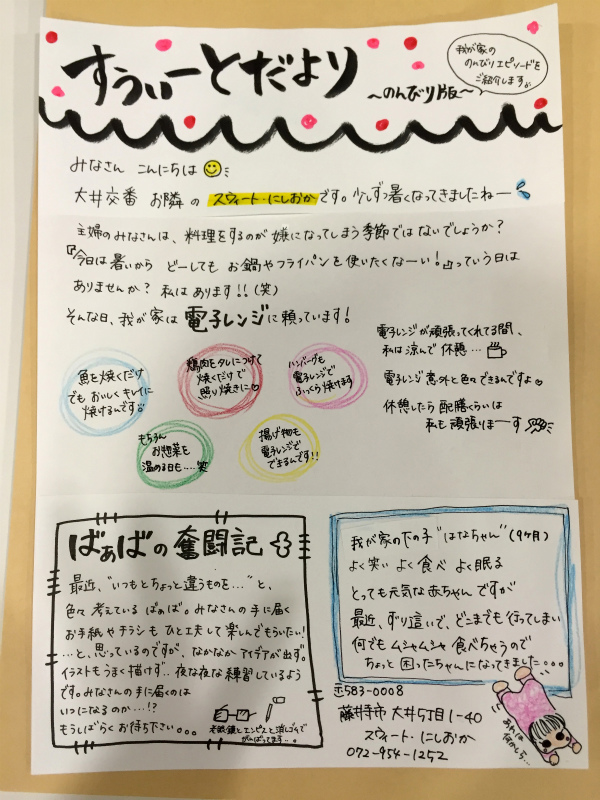 すうぃーとだより
〜のんびり版〜
我が家の
のんびりエピソードを
ご紹介します
みなさん こんにちは
大井交番 お隣の スウィート・にしおかです。少しずつ暑くなってきましたねー
主婦のみなさんは、料理をするのが嫌になってしまう季節ではないでしょうか?
『今日は暑いから どーしても お鍋やフライパンを使いたくなーい!』っていう日は
ありませんか? 私はあります!!(笑)
そんな日、我が家は電子レンジに頼っています!
魚を焼くだけ
でも おいしく キレイに
焼けるんです
鶏肉をタレにつけて
焼くだけで
照り焼きに♡
ハンバーグも
電子レンジで
ふっくら焼けます
もちろん
お惣菜を
温める日も....笑
揚げ物も
電子レンジで
できるんです!!
電子レンジが頑張ってくれてる間、
私は涼んで 休憩...
電子レンジ意外と色々できるんですよ♡
休憩したら 配膳くらいは
私も頑張りまーす
ばぁばの奮闘記
最近、"いつもとちょっと違うものを…"と、
色々 考えている ばぁば。みなさんの手に届く
お手紙やチラシも ひと工夫して 楽しんでもらいたい!
…と、思っているのですが、なかなかアイデアが出ず。
イラストもうまく描けず.. 夜な夜な練習しているよう
です。みなさんの手に届くのは
いつになるのか…!?
もうしばらくお待ち下さい。。。
老眼鏡とエンピツと消しゴムで
がんばってます..。
我が家の下の子"はなちゃん"(9ヶ月)
よく笑い よく食べ よく眠る
とっても元気な赤ちゃんですが
最近、ずり這いで、どこまでも行ってしまい
何でもムシャムシャ 食べちゃうので
ちょっと困ったちゃんになってきました。。。
〒583-0008
藤井寺市 大井5丁目1-40
スウィート・にしおか
072-954-1252
あれは
何かしら…